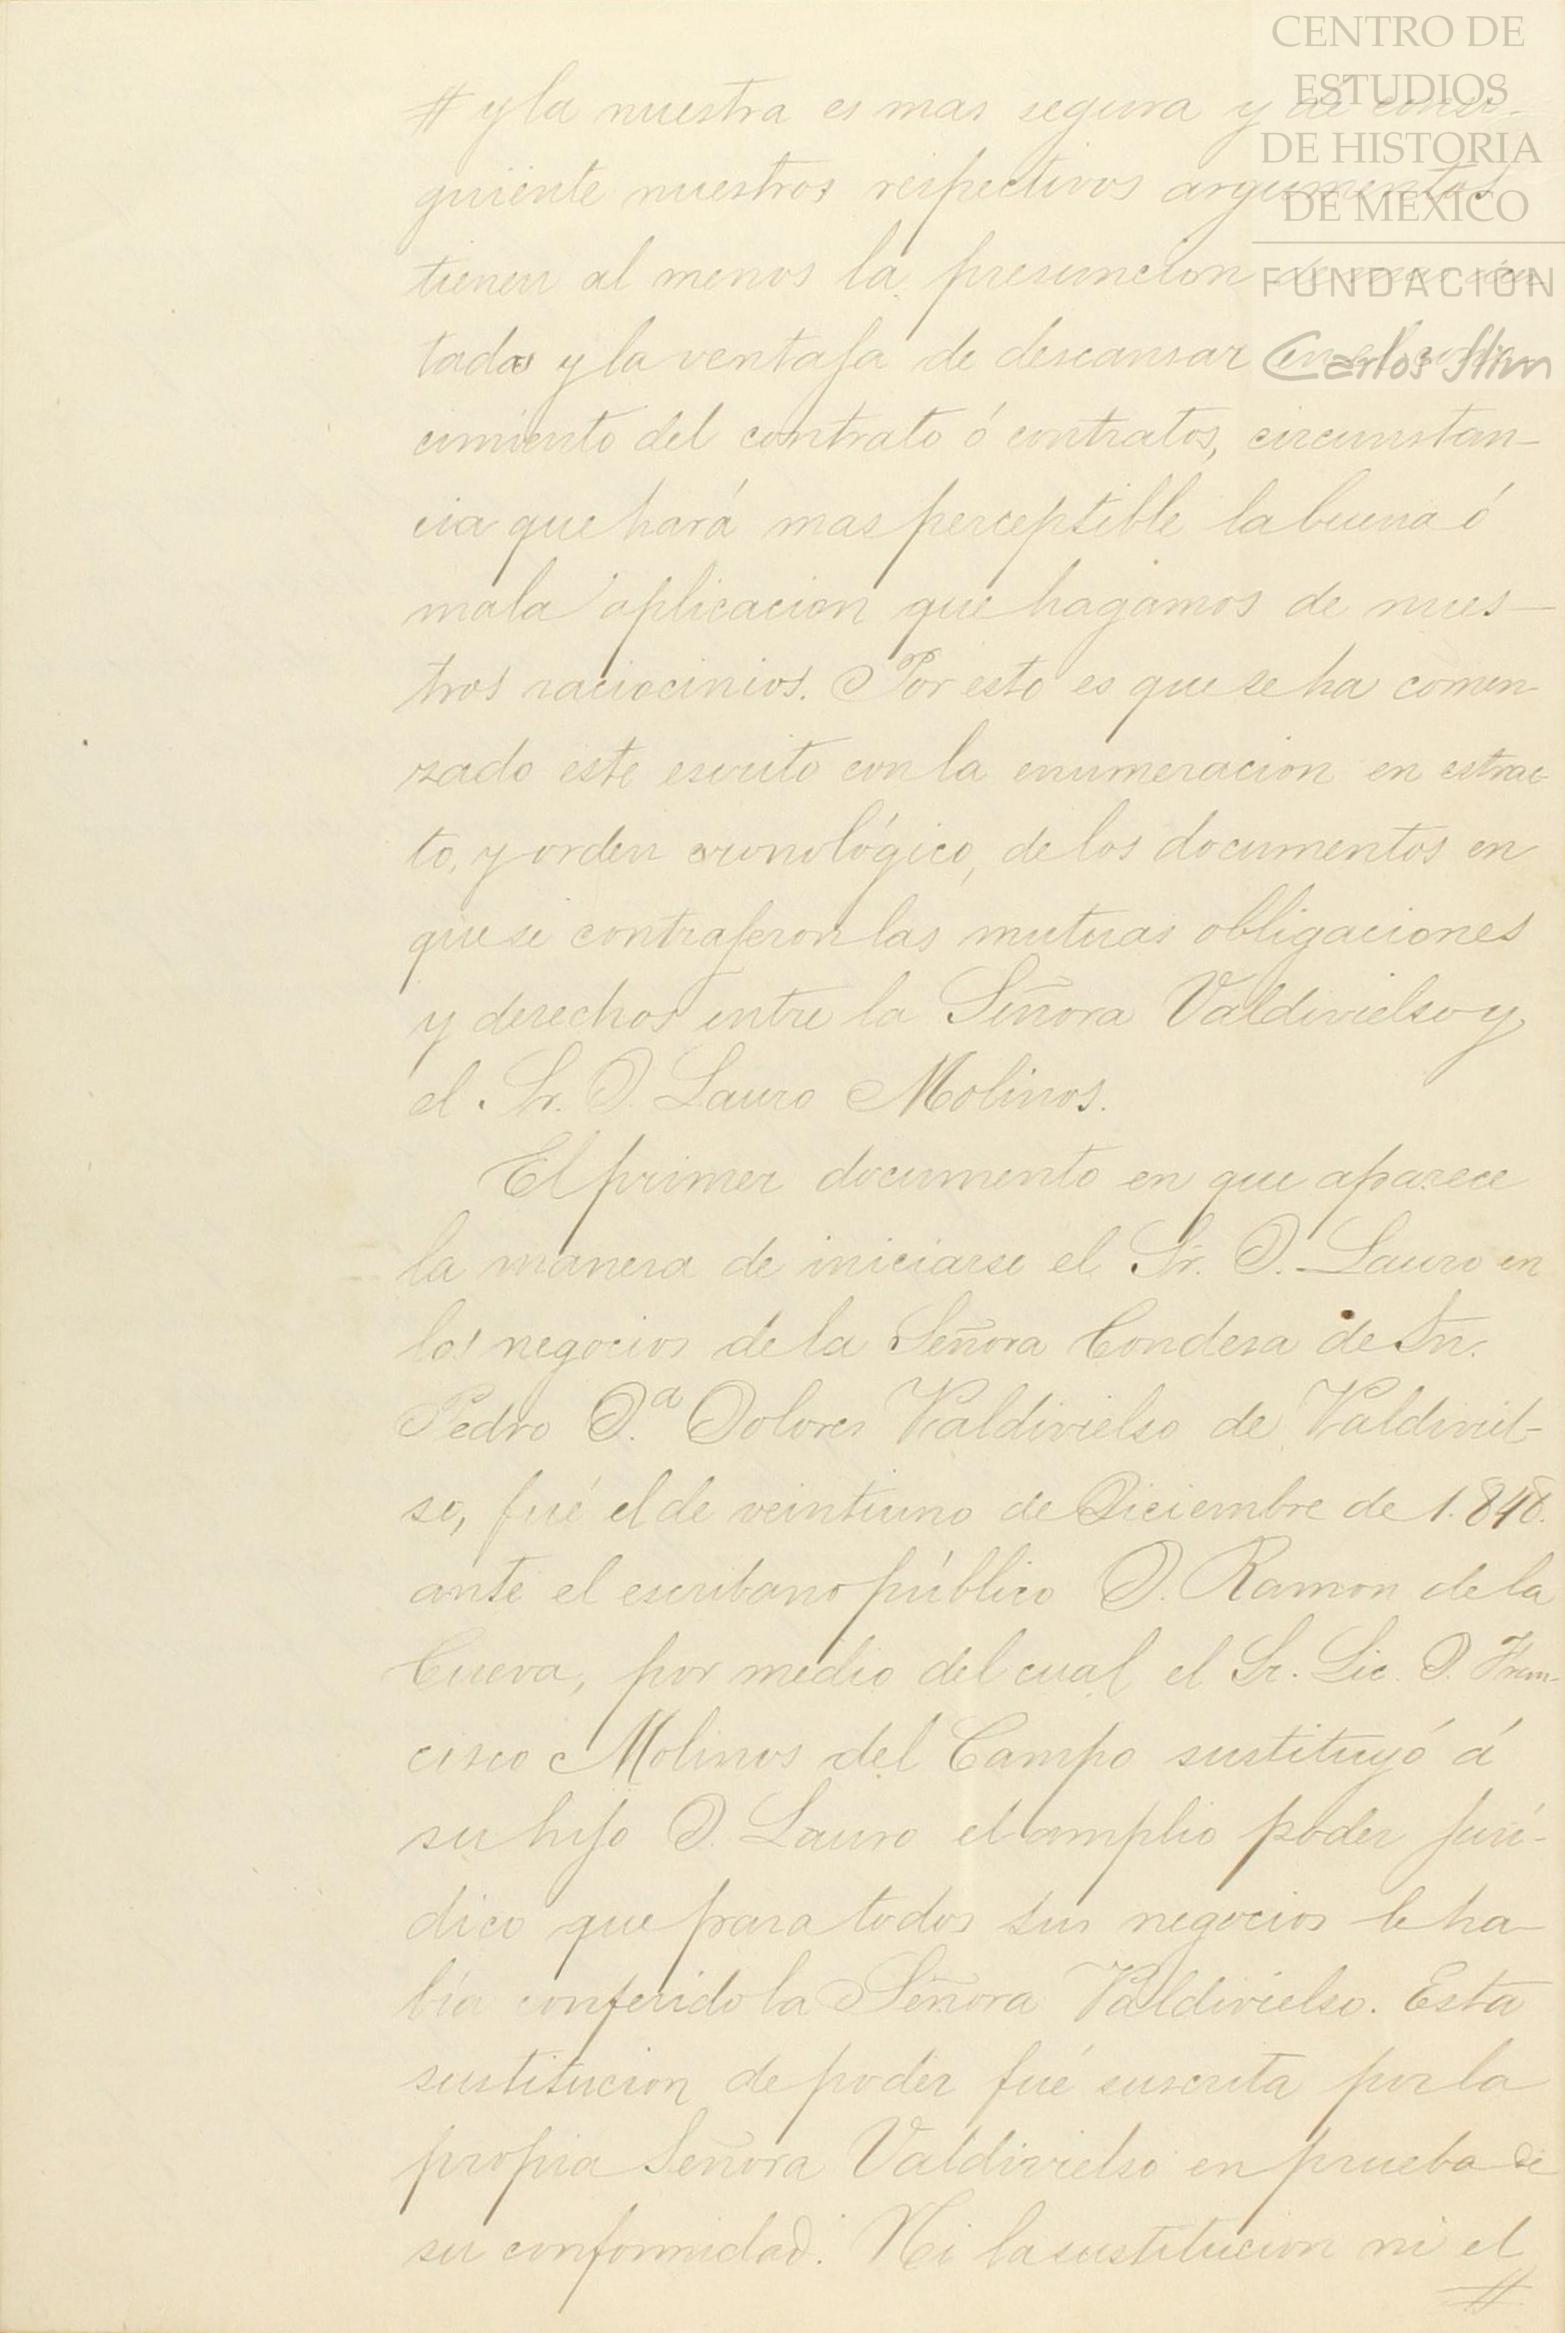 CENTRO DE
ESTUDIOS
DE HISTORIA
DE MEXICO
FUNDACIÓN
Carlos Slim
# y la nuestra es mas segura y de consi-
guiente nuestros respectivos argumentos
tienen al menos la presuncion
tados y la ventaja de descansar en el cono-
cimiento del contrato ó contratos, circunstan-
cia que hará mas perceptible la buena ó
mala aplicacion que hagamos de nues-
tros raciocinios. Por esto es que se ha comen-
zado este escrito con la enumeracion en estrac-
to, y orden cronológico, de los documentos en
que se contrajeron las mutuas obligaciones
y derechos entre la Señora Valdivielso y
el Sr. D. Lauro Molinos.
El primer documento en que aparece
la manera de iniciarse el Sr. D. Lauro en
los negocios de la Señora Condesa de Sn.
Pedro D.ª Dolores Valdivielso de Valdiviel-
so, fué el de veintiuno de Diciembre de 1.848.
ante el escribano público D. Ramon de la
Cueva, por medio del cual el Sr. Lic. D. Fran-
cisco Molinos del Campo sustituyó á
su hijo D. Lauro el amplio poder jurí-
dico que para todos sus negocios le ha-
bía conferido la Señora Valdivielso. Esta
sustitucion de poder fué suscrita por la
propia Señora Valdivielso en prueba de
su conformidad. Ni la sustitucion ni el
#